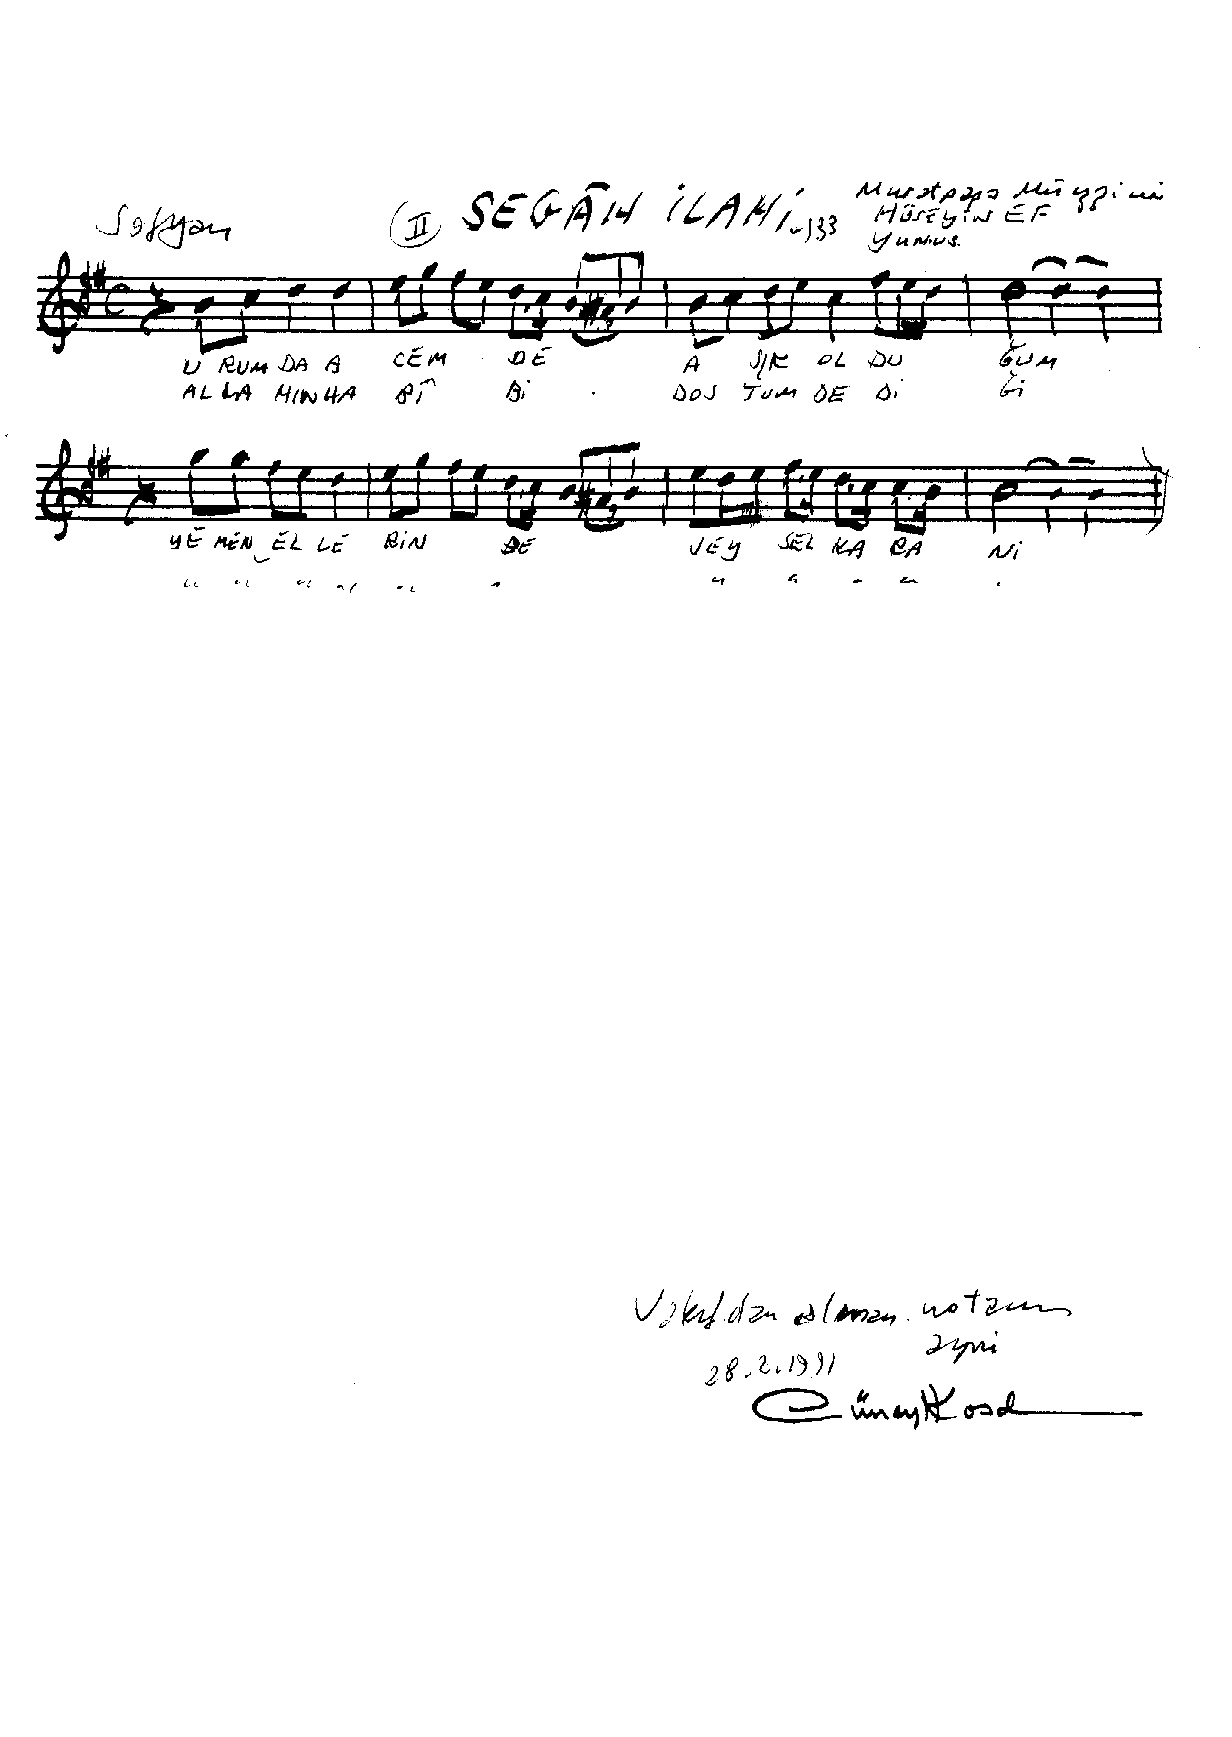 Sofyan
(II) SEGÂH İLAHİ
Muratpaşa Müezzini
HÜSEYİN EF
YUNUS.
U RUM DA A CEM DE A ŞIK OL DU ĞUM
AL LA HIN HA BÎ Bİ . DOS TUM DE Dİ Ğİ
YE MEN EL LE RİN DE VEY SEL KA RA Nİ
Vakıfdan alınan notanın
aynı
28.2.1991